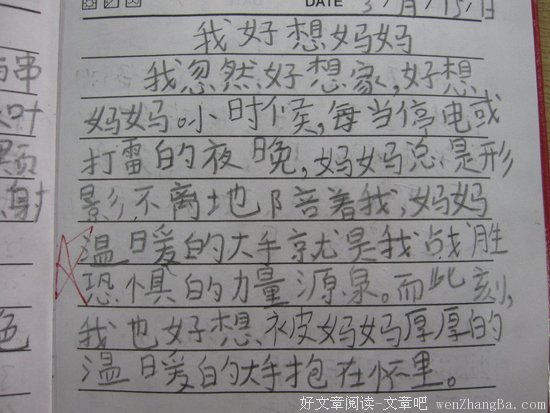 DATE 3/月/15/日
DATE
我好想妈妈
我忽然好想家,好想
妈妈。小时候,每当停电或
打雷的夜晚,妈妈总是形
影不离地陪着我,妈妈
温暖的大手就是我战胜
恐惧的力量源泉。而此刻,
我也好想被妈妈厚厚的
温暖的大手抱在怀里。
串
叶
颗
射
色
好文章阅读-文章吧 wenZhangBa.com